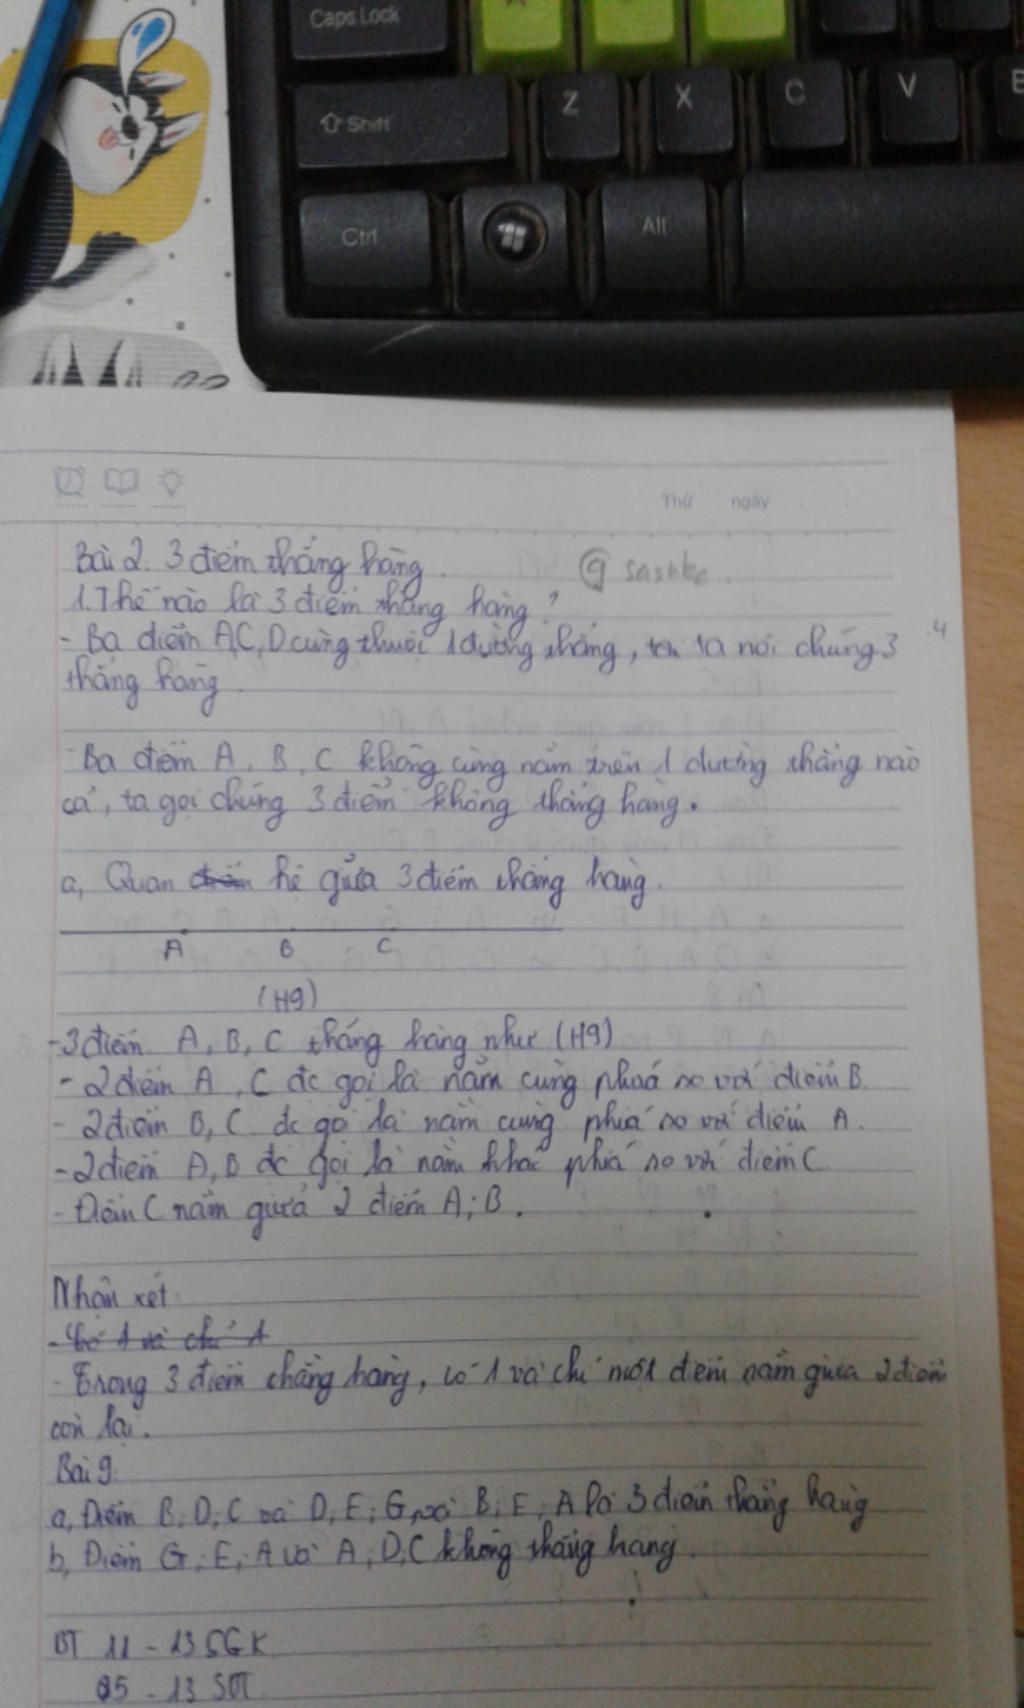 Caps Lock
Shift Z X C V B
Ctrl Alt
Thứ ngày
Bài 2. 3 điểm thẳng hàng.
sasuke.
1. Thế nào là 3 điểm thẳng hàng?
- Ba điểm A, C, D cùng thuộc 1 đường thẳng, ta nói chúng 3
thẳng hàng.
- Ba điểm A, B, C không cùng nằm trên 1 đường thẳng nào
cả, ta gọi chúng 3 điểm không thẳng hàng.
a, Quan hệ gữa 3 điểm thẳng hàng.
A B C
(H9)
- 3 điểm A, B, C thẳng hàng như (H9)
- 2 điểm A, C đc gọi là nằm cùng phía so với điểm B.
- 2 điểm B, C đc gọi là nằm cùng phía so với điểm A.
- 2 điểm A, B đc gọi là nằm khác phía so với điểm C.
- Điểm C nằm giữa 2 điểm A; B.
Nhận xét:
- Có 1 và chỉ 1
- Trong 3 điểm thẳng hàng, có 1 và chỉ một điểm nằm giữa 2 điểm
còn lại.
Bài 9:
a, Điểm B; D; C và D; E; G và B; E; A là 3 điểm thẳng hàng
b, Điểm G; E; A và A; D; C không thẳng hàng.
BT 11 - 13 SGK
05 - 13 SBT